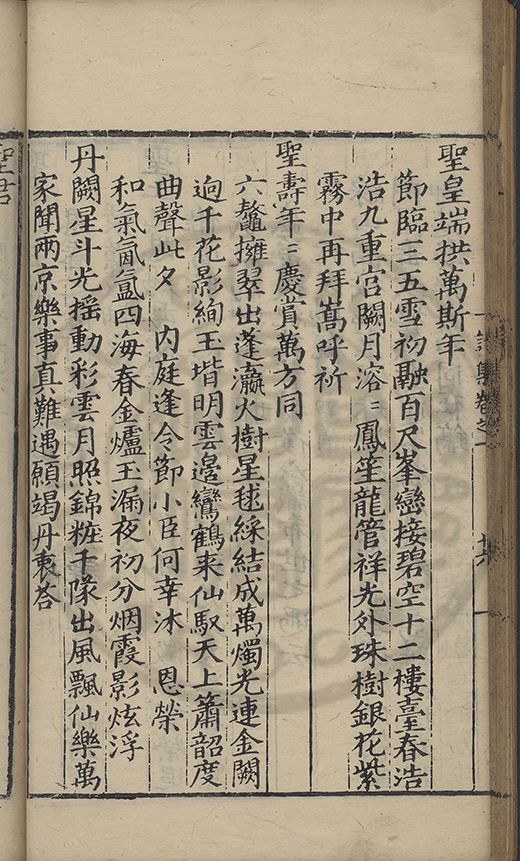 聖皇端拱萬斯年
節臨三五雪初融百尺峯巒接碧空十二樓臺春浩
浩九重宮闕月溶〻鳳笙龍管祥光外珠樹銀花紫
霧中再拜嵩呼祈
聖壽年〻慶賞萬方同
六鼇擁翠出蓬瀛火樹星毬綵結成萬燭光連金闕
逈千花影絢玉堦明雲邊鸞鶴来仙馭天上簫韶度
曲聲此夕 內庭逢令節小臣何幸沐 恩榮
和氣氤氳四海春金爐玉漏夜初分烟霞影炫浮
丹闕星斗光摇動彩雲月照錦粧千隊出風飄仙樂萬
家聞兩京樂事真難遇願竭丹衷荅
聖君